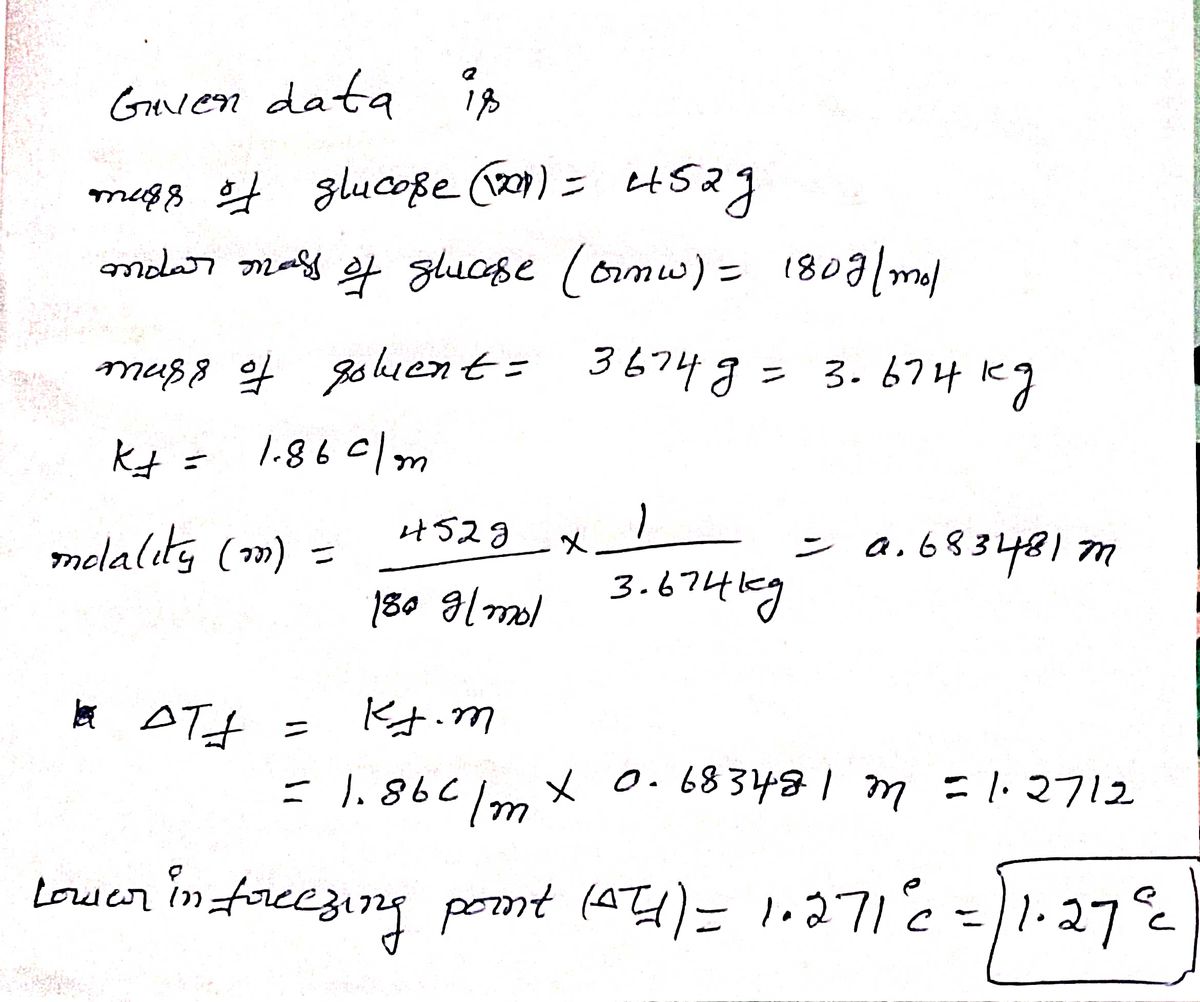 Given data is
mass of glucose = 452g
molar mass of glucose (gmw) = 180g/mol
mass of solvent = 3674 g = 3.674 kg
Kf = 1.86 C/m
molality (m) = 452g / 180 g/mol × 1 / 3.674kg = 0.683481 m
ΔTf = Kf.m
= 1.86C/m × 0.683481 m = 1.2712
Lower in freezing point (ΔTf) = 1.271°C = 1.27°C